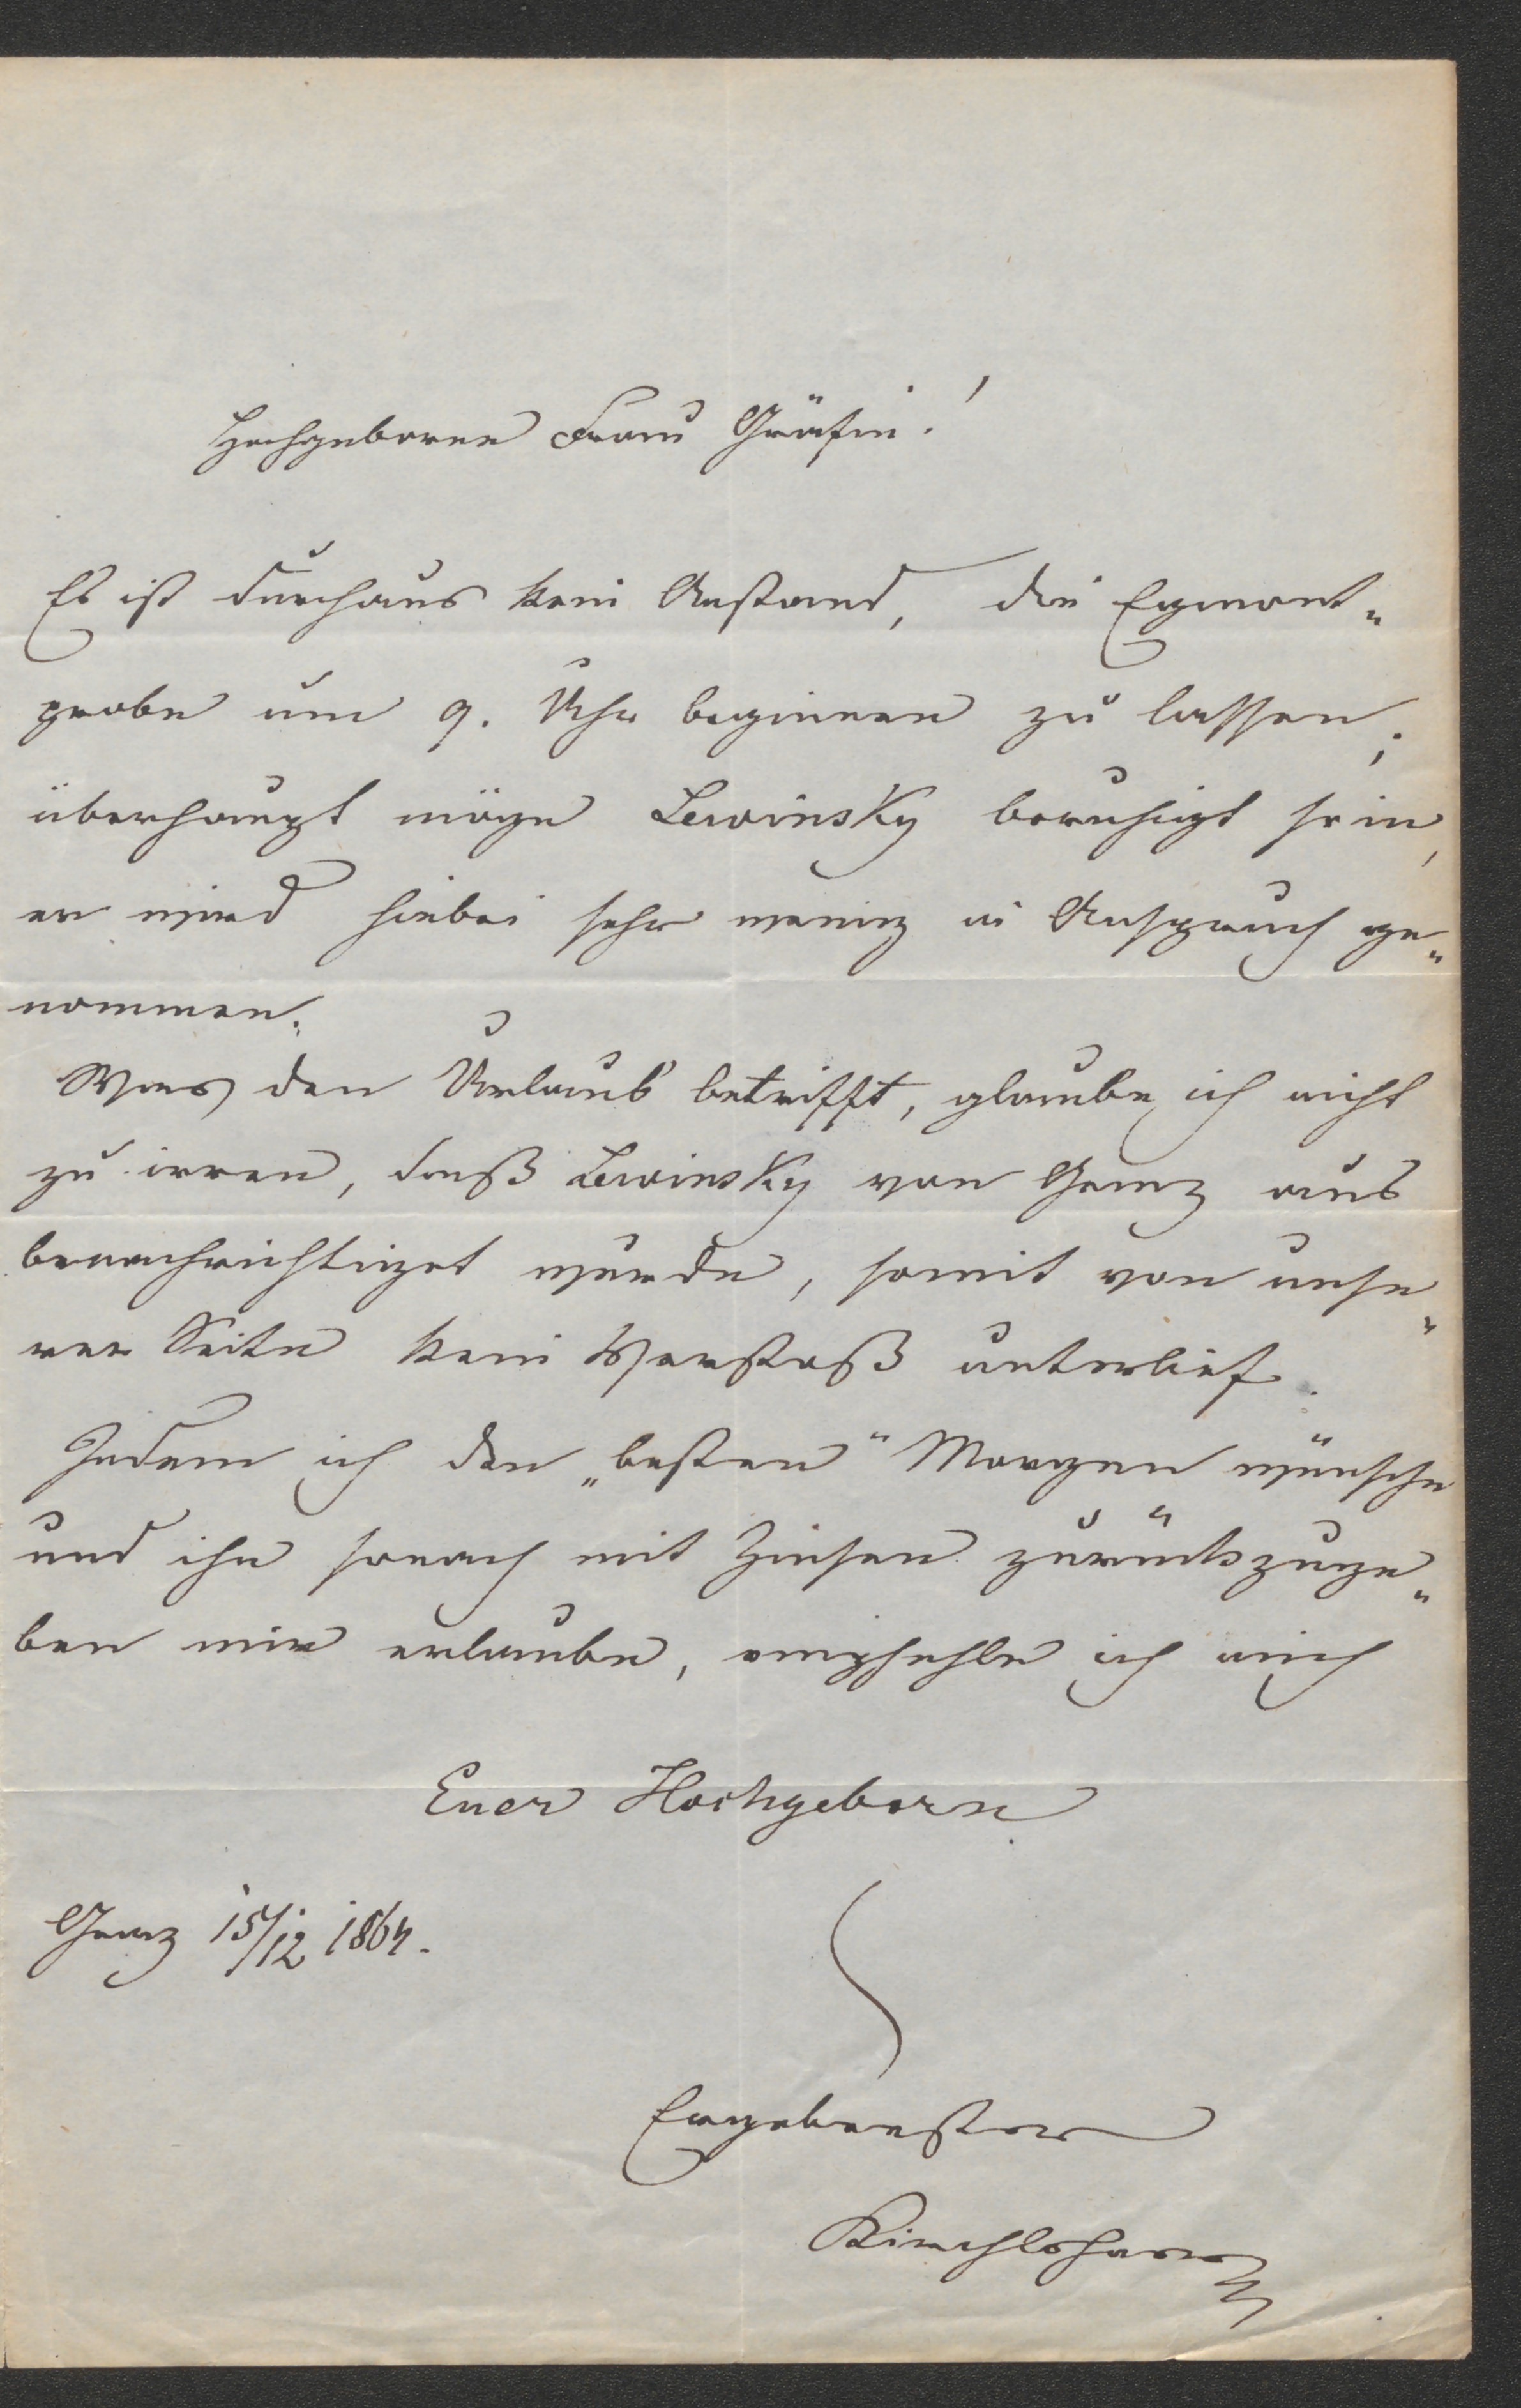 Hochgeborne Frau Gräfin!
Es ist durchaus kein Anstand, die Egmont„
probe um 9. Uhr beginnen zu lassen;
überhaupt möge Lewinsky beruhigt sein,
er wird hiebei sehr wenig in Anspruch ge„
nommen.
Was den Urlaub betrifft, glaube ich nicht
zu irren, daß Lewinsky von Graz aus
benachrichtiget wurde, somit von unse„
rer Seite kein Verstoß unterlief.
Indem ich den „besten“ Morgen wünsche
und ihn sonach mit Zinsen zurückzuge„
ben mir erlaube, empfehle ich mich
Euer Hochgeborn
Graz 15/12 1864.
Ergebenster